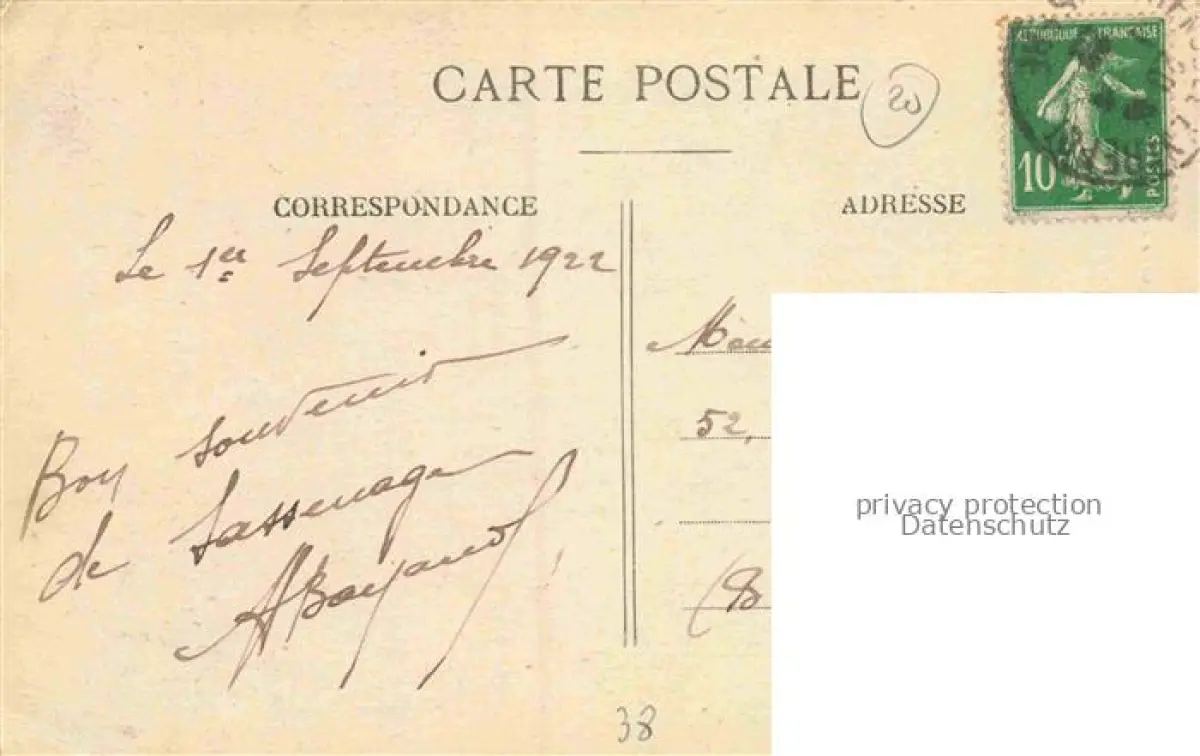 CARTE POSTALE
20
REPUBLIQUE FRANÇAISE
10
POSTES
CORRESPONDANCE
ADRESSE
Le 1er Septembre 1922
Bon souvenir
de Sassenage
52,
privacy protection
Datenschutz
38